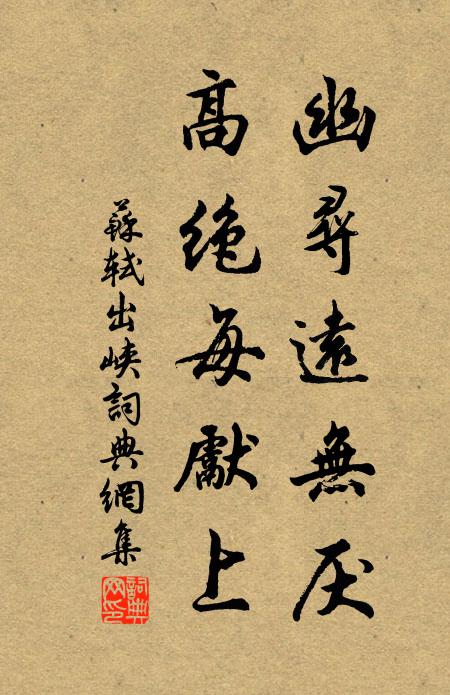 幽尋遠無厌
高絶每獻上
蘇軾出峽詞典網集
詞典网印